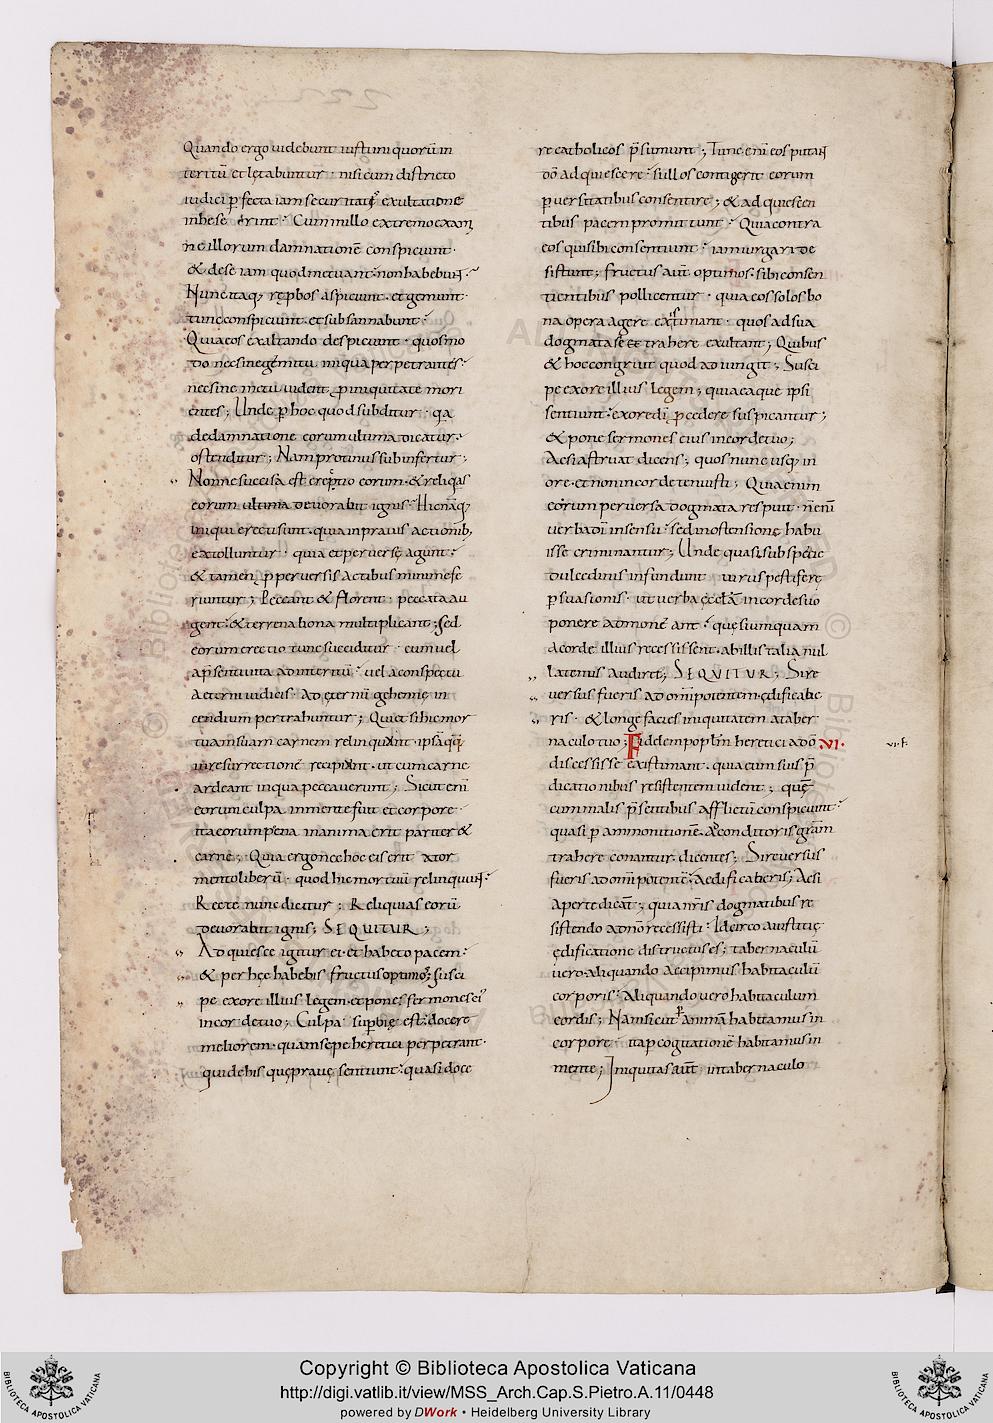 Quando ergo uidebunt iusti iniquorū in
teritū et lętabuntur · nisi cum districto
iudici p̄fecta iam securitatis exultatione
inheserint · Cum in illo extremo exam
ne illorum damnationē conspiciunt ·
& de se iam quod metuant · non habebunt ·
Nunc itaq; reprobos aspiciunt · et gemunt ·
tunc conspiciunt · et subsannabunt ·
Quia eos exaltando despiciunt · quos mo
do nec sine gemitu iniqua perpetrantes ·
nec sine metu uident pro iniquitate mori
entes ; Unde p hoc quod subditur · qa
de damnatione eorum ultima dicatur ·
ostenditur ; Nam protinus subinfertur ·
Nonne succisa est erectio eorum · & reliqas
eorum ultima deuorabit ignis · Hic nāq;
iniqui erecti sunt · quia in prauis actionib;
extolluntur · quia et peruersę agunt ·
& tamen p peruersis actibus minime fe
riuntur ; Peccant & florent · peccata au
gent · & terrena bona multiplicant ; sed
eorum erectio tunc succiditur · cum uel
a p̄senti uita ad interitū · uel a conspectu
aeterni iudicis · ad ęternū gehennę in
cendium pertrahuntur ; Qui et si hic mor
tuam suam carnem relinquunt · ipsā qq;
in resurrectionē recipiunt · ut cum carne
ardeant in qua peccauerunt ; Sicut enī
eorum culpa in mente fuit et corpore
ita eorum pena in anima erit pariter &
carne ; Quia ergo nec hoc eis erit a tor
mento liberū · quod hic mortuū relinquunt ·
Recte nunc dicitur ; Reliquias eorū
deuorabit ignis ; SEQUITUR ;
Adquiesce igitur ei · et habeto pacem ·
& per hęc habebis fructus optimos ; susci
pe ex ore illius legem · et pones sermones ei'
in corde tuo ; Culpa supbię est · docere
meliorem · quam sepe heretici perpetrant ·
qui de his quę prauę sentiunt · quasi doce
re catholicos p̄sumunt ; Tunc enī eos putant
dō adquiescere · si illos contigerit eorum
peruersitatibus consentire ; & adquiescen
tibus pacem promittunt · Quia contra
eos qui sibi consentiunt · iam iurgari de
sistunt ; fructus aut optimos · sibi consen
tientibus pollicentur · quia eos solos bo
na opera agere existimant · quos ad sua
dogmata se et trahere exultant ; Quibus
& hoc congruit quod adiungit ; Susci
pe ex ore illius legem ; quia ea que ipsi
sentiunt · ex ore dī pcedere suspicantur ;
& pone sermones eius in corde tuo ;
Ac si astruat dicens ; quos nunc usq; in
ore · et non in corde tenuisti ; Quia enim
eorum peruersa dogmata respuit · n̄ enī
uerba dī in sensu · sed in ostensione habu
isse criminantur ; Unde quasi sub specie
dulcedinis infundunt uirus pestiferę
psuasionis · ut uerba ęcclā in corde suo
ponere admoneant · quę si umquam
a corde illius recessissent · ab illis talia nul
latenus audiret ; SEQUITUR ; Si re
uersus fueris ad omīpotentem · ędificabe
ris · & longe facies iniquitatem a taber
naculo tuo ; Fidelem pop̄lm heretici a dō .VI.
discessisse existimant · quia cum suis p̄
dicationibus resistentem uident ; quē
cum malis p̄sentibus afflictū conspiciunt ·
quasi p ammonitionē · ad conditoris grām
trahere conantur dicentes ; Si reuersus
fueris ad omīpotentē · aedificaberis ; Ac si
aperte dicāt ; quia nr̄is dogmatibus re
sistendo a dn̄o recessisti · Idcirco a iustitię
ędificatione distructus es ; tabernaculū
uero aliquando accipimus habitaculū
corporis · Aliquando uero habitaculum
cordis ; Nam sicut p animā habitamus in
corpore · ita p cogitationē habitamus in
mente ; Iniquitas aut in tabernaculo
Copyright © Biblioteca Apostolica Vaticana
http://digi.vatlib.it/view/MSS_Arch.Cap.S.Pietro.A.11/0448
powered by DWork • Heidelberg University Library